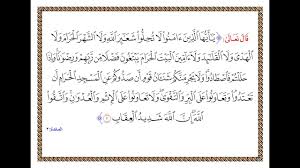 قَالَ تَعَالَىٰ: ﴿ يَٰٓأَيُّهَا ٱلَّذِينَ ءَامَنُوا۟ لَا تُحِلُّوا۟ شَعَٰٓئِرَ ٱللَّهِ وَلَا ٱلشَّهْرَ ٱلْحَرَامَ وَلَا
ٱلْهَدْىَ وَلَا ٱلْقَلَٰٓئِدَ وَلَآ ءَآمِّينَ ٱلْبَيْتَ ٱلْحَرَامَ يَبْتَغُونَ فَضْلًا مِّن رَّبِّهِمْ وَرِضْوَٰنًا وَإِذَا
حَلَلْتُمْ فَٱصْطَادُوا۟ وَلَا يَجْرِمَنَّكُمْ شَنَـَٔانُ قَوْمٍ أَن صَدُّوكُمْ عَنِ ٱلْمَسْجِدِ ٱلْحَرَامِ أَن
تَعْتَدُوا۟ وَتَعَاوَنُوا۟ عَلَى ٱلْبِرِّ وَٱلتَّقْوَىٰ وَلَا تَعَاوَنُوا۟ عَلَى ٱلْإِثْمِ وَٱلْعُدْوَٰنِ وَٱتَّقُوا۟
ٱللَّهَ إِنَّ ٱللَّهَ شَدِيدُ ٱلْعِقَابِ ﴾ المائدة: ٢